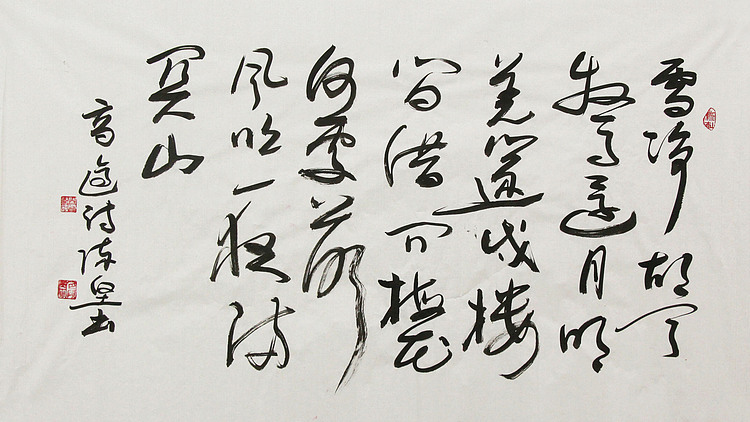 雪净胡天
牧马還月明
羌笛戍楼
间借问梅花
何處落
风吹一夜满
关山
高適诗陈书